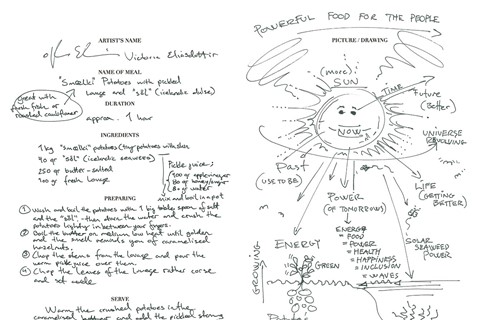 ARTIST'S NAME
Victoria Eliasdóttir
NAME OF MEAL
"Smælki" Potatoes with pickled
Lovage and "söl" (icelandic dulse)
great with
fresh fish or
roasted cauliflower
DURATION
approx. 1 hour
INGREDIENTS
1 kg "smælki" potatoes (tiny potatoes with skin
40 gr "söl" (icelandic seaweed)
250 gr butter - salted
100 gr fresh lovage
Pickle juice:
100 gr apple vinegar
80 gr honey/sugar
80 gr water
mix and boil in a pot
PREPARING
① Wash and boil the potatoes with 1 big table spoon of salt
and the "söl" - then strain the water and crush the
potatoes lightly in between your fingers.
② Boil the butter on medium low heat until golden
and the smell reminds you of caramelised
hazelnuts.
③ Chop the stems from the lovage and pour the
warm pickle juice over them.
④ Chop the leaves of the lovage rather corse
and set aside
SERVE
Warm the crushed potatoes in the
caramelised butter and add the pickled stems
POWERFUL FOOD FOR THE PEOPLE
PICTURE / DRAWING
(more)
SUN
TIME
Future
(Better)
NOW
UNIVERSE
REVOLVING
Past
(USE TO BE)
LIFE
(GETTING
BETTER)
POWER
(OF TOMORROWS)
ENERGY
= FOOD
= POWER
= HEALTH
= HAPPINESS
= INCLUSION
= WAVES
SOLAR
SEAWEED
POWER
ENERGY
GREEN
GROWING